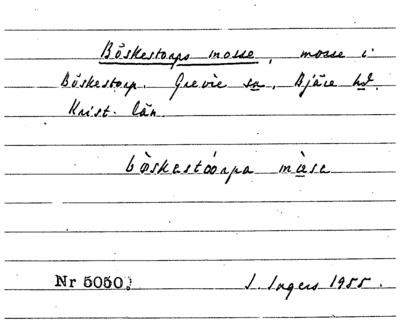 Båskestorps mosse, mosse i
Båskestorp. Grevie sn, Bjäre hd.
Krist. län.
bòskestóorpa màse
Nr 5050.
I. Ingers 1955.